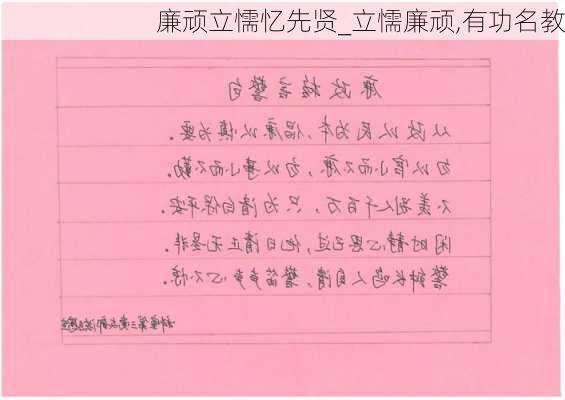 廉顽立懦忆先贤_立懦廉顽,有功名教
廉政格言警句
从政以民为本,倡廉以慎为要。
勿以官小而不廉,勿以事小而不勤。
不羡别人千百万,只为清白保平安。
闲时静心思己过,他日清正无是非。
警钟长鸣人自清,警笛声声心不惊。
第三党支部